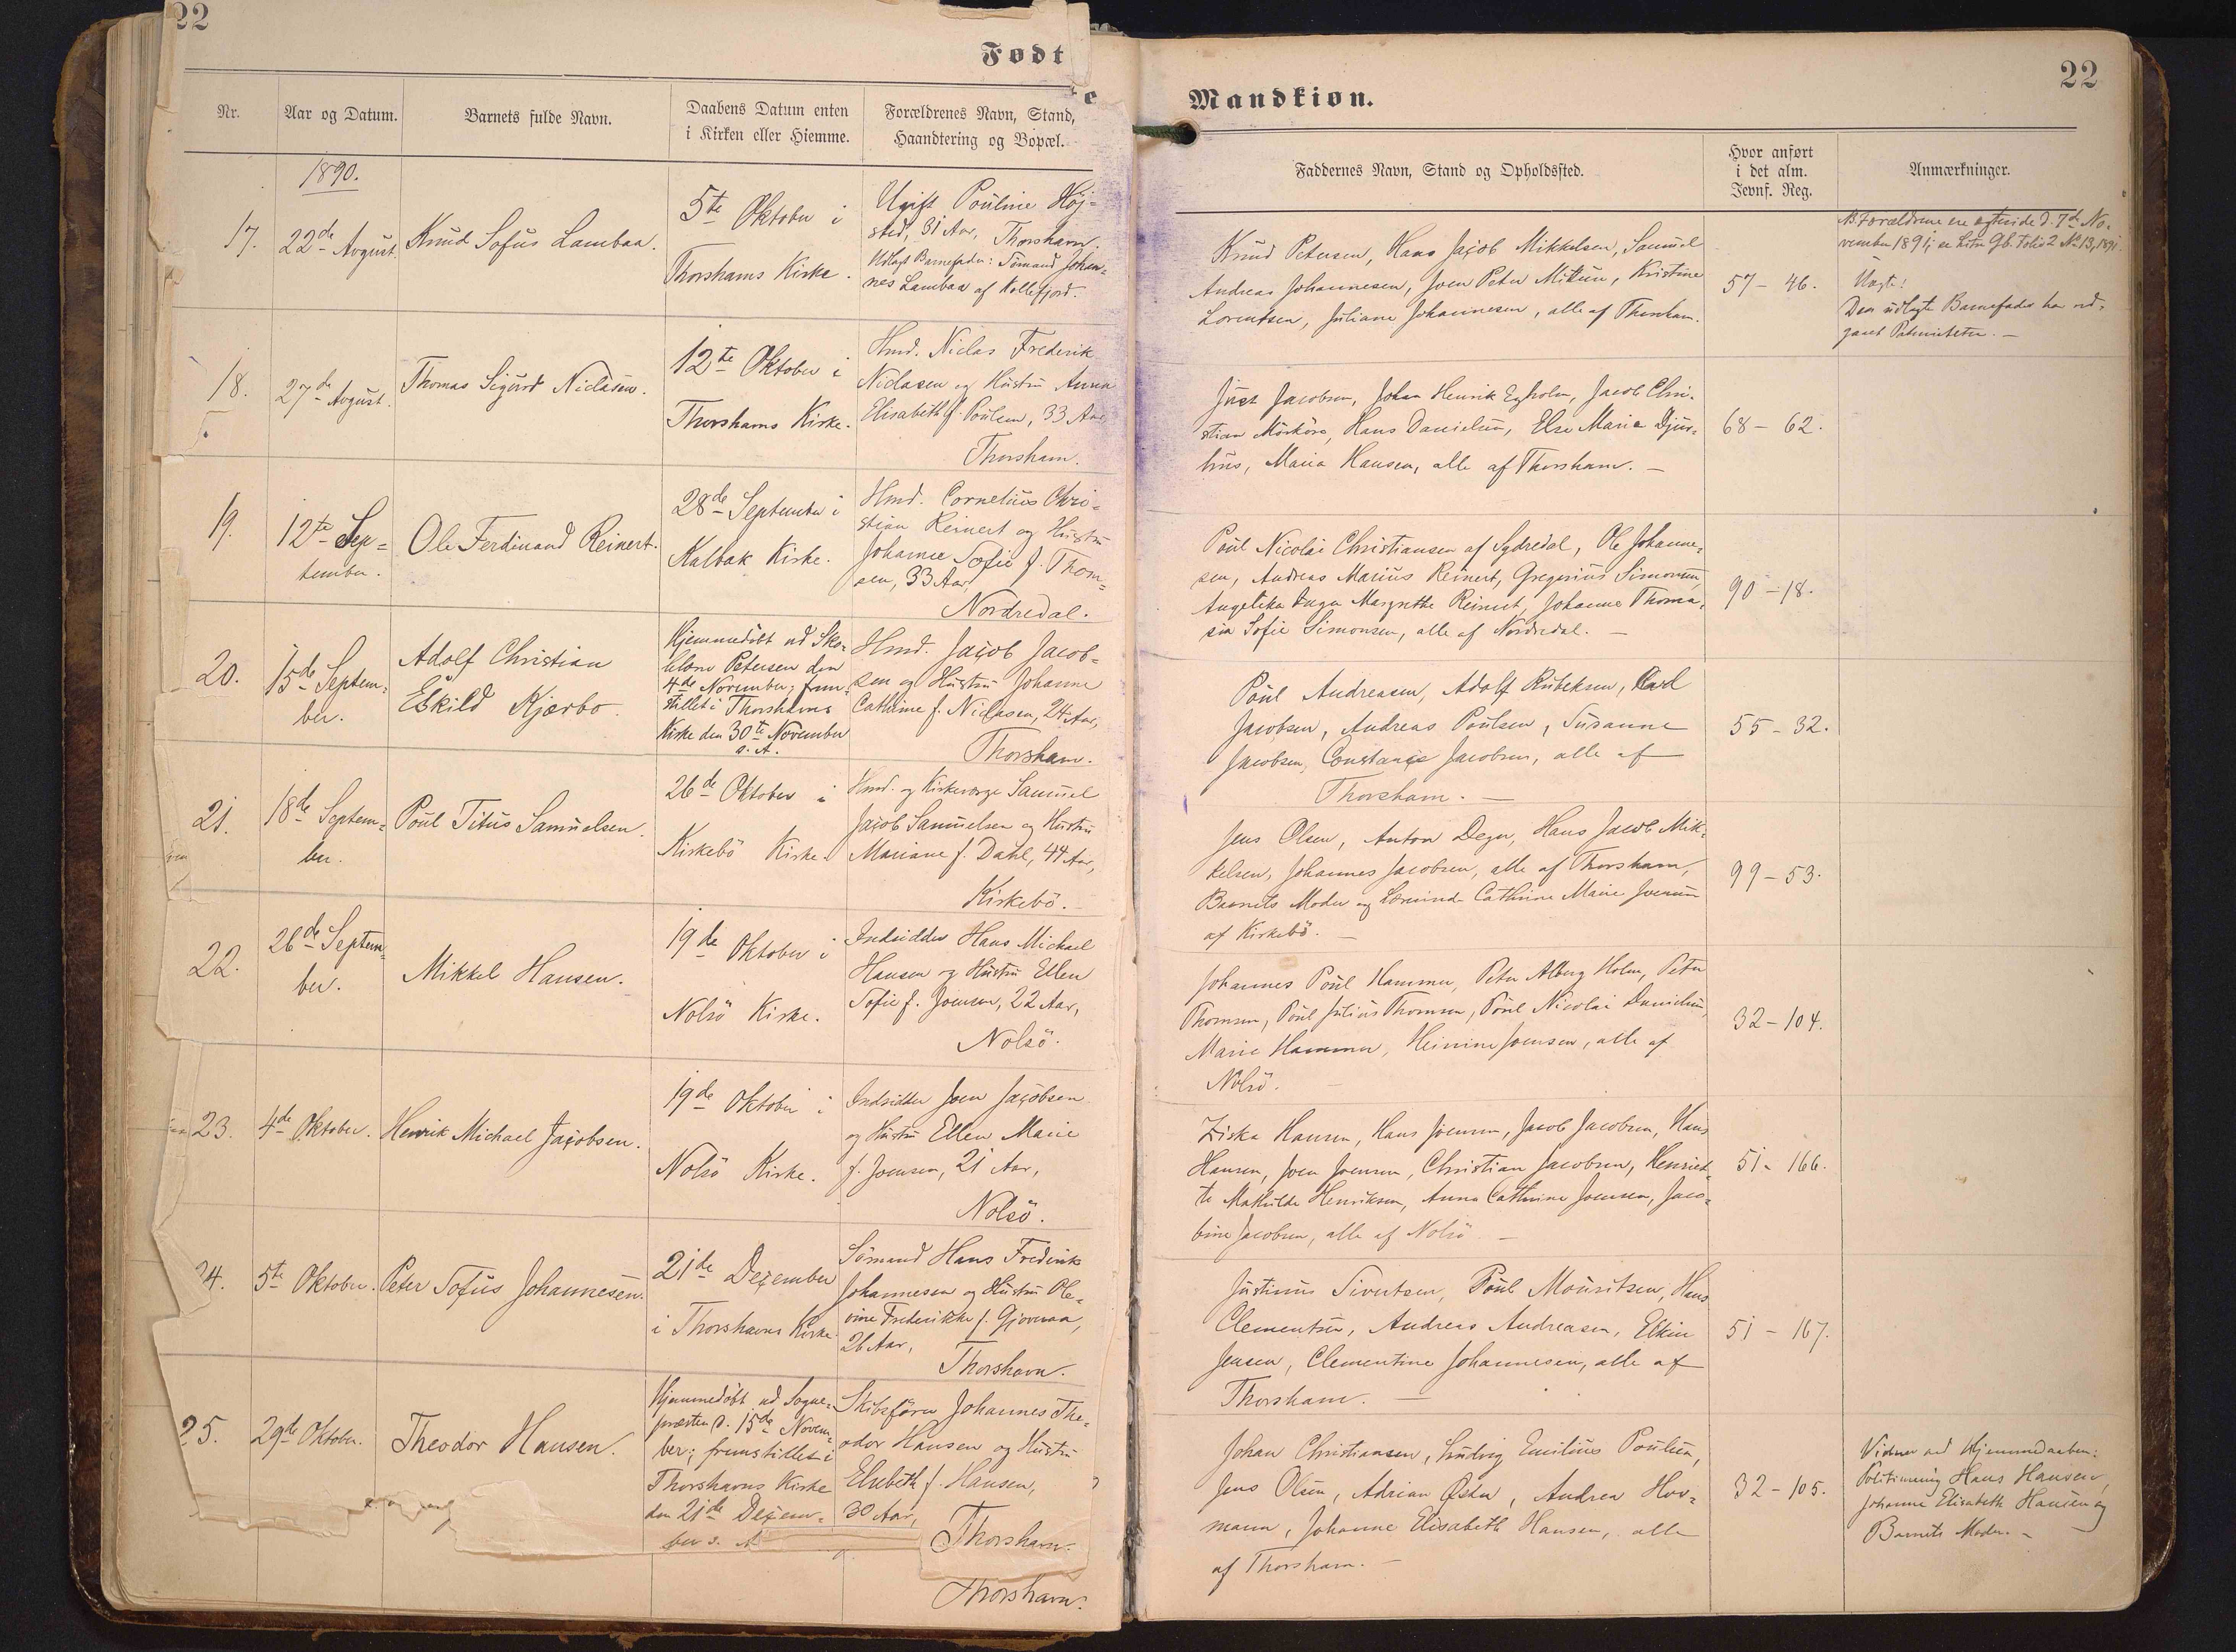 22
Født
Nr.
Aar og Datum.
Barnets fulde Navn.
Daabens Datum enten
i Kirken eller Hiemme.
Forældrenes Navn, Stand,
Haandtering og Bopæl.
1890.
17.
22de August.
Knud Sofus Lambaa.
5te Oktober i
Thorshavns Kirke.
Ugift Pouline Höj-
sted, 31 Aar, Thorshavn.
Udlagt Barnefader: Sömand Johan-
nes Lambaa af Kollefjord.
18.
27de August.
Thomas Sigurd Niclasen.
12te Oktober i
Thorshavns Kirke.
Hmd. Niclas Frederik
Niclasen og Hustru Anna
Elisabeth f. Poulsen, 33 Aar
Thorshavn.
19.
12te Sep-
tember.
Ole Ferdinand Reinert.
28de September i
Kalbak Kirke.
Hmd. Cornelius Chri-
stian Reinert og Hustru
Johanne Sofie f. Thom-
sen, 33 Aar,
Nordredal.
20.
15de Septem-
ber.
Adolf Christian
Eskild Kjærbo.
Hjemmedöbt ad Sko-
lelærer Petersen den
4de November; frem-
stillet i Thorshavns
Kirke den 30te November
s. A.
Hmd. Jacob Jacob-
sen og Hustru Johanne
Cathrine f. Niclasen, 24 Aar,
Thorshavn.
21.
18de Septem-
ber.
Poul Titus Samuelsen.
26de Oktober i
Kirkebö Kirke.
Hmd. og Kirkeværge Samuel
Jacob Samuelsen og Hustru
Mariane f. Dahl, 44 Aar,
Kirkebö.
22.
26de Septem-
ber.
Mikkel Hansen.
19de Oktober i
Nolsö Kirke.
Indsidder Hans Michael
Hansen og Hustru Ellen
Sofie f. Joensen, 22 Aar,
Nolsö.
23.
4de Oktober.
Henrik Michael Jacobsen.
19de Oktober i
Nolsö Kirke.
Indsidder Joen Jacobsen
og Hustru Ellen Marie
f. Joensen, 21 Aar,
Nolsö.
24.
5te Oktober.
Peter Sofus Johannesen.
21de Dezember
i Thorshavns Kirke.
Sömand Hans Frederik
Johannesen og Hustru Ole-
vine Frederikke f. Gjoveraa,
26 Aar,
Thorshavn.
25.
29de Oktober.
Theodor Hansen.
Hjemmedöbt ad Sogne-
præsten d. 15de Novem-
ber; fremstillet i
Thorshavns Kirke
den 21de Dezem-
ber s. A.
Skibsförer Johannes The-
odor Hansen og Hustru
Elsebeth f. Hansen,
30 Aar,
Thorshavn.
Thorshavn.
22
Mandkiøn.
Faddernes Navn, Stand og Opholdssted.
Hvor anført
i det alm.
Jevnf. Reg.
Anmærkninger.
Knud Petersen, Hans Jacob Mikkelsen, Samuel
Andreas Johannesen, Joen Peter Kristine
Lorentsen, Juliane Johannesen, alle af Thorshavn.
57 - 46.
NB. Forældrene ere ægteviede d. 7de No-
vember 1891; se Litr. Gb. Folio 2 No 13, 1891.
Uægte:
Den udlagte Barnefader har ved-
gaaet Paterniteten. -
Just Jacobsen, Johan Henrik Egholm, Jacob Chri-
stian Mörköre, Hans Danielsen, Else Marie Djur-
huus, Maria Hansen, alle af Thorshavn. -
68 - 62.
Poul Nicolai Christiansen af Sydredal, Ole Johanne-
sen, Andreas Marius Reinert, Gregorius Simonsen,
Angelika Inger Margrethe Reinert, Johanne Thoma-
sia Sofie Simonsen, alle af Nordredal. -
90 - 18.
Poul Andreasen, Adolf Rubeksen, Karl
Jacobsen, Andreas Poulsen, Susanne
Jacobsen, Constance Jacobsen, alle af
Thorshavn. -
55 - 32.
Jens Olsen, Anton Degn, Hans Jacob Mik-
kelsen, Johannes Jacobsen, alle af Thorshavn,
Barnets Moder og Cathrine Marie Joensen
af Kirkebö. -
99 - 53.
Johannes Poul Hammer, Peter Alberg Holm, Peter
Thomsen, Poul Julius Thomsen, Poul Nicolai Danielsen,
Marie Hammer, Heinine Joensen, alle af
Nolsö. -
32 - 104.
Ziska Hansen, Hans Joensen, Jacob Jacobsen, Hans
Hansen, Joen Joensen, Christian Jacobsen, Henriet-
te Mathilde Henriksen, Anna Cathrine Joensen, Jaco-
bine Jacobsen, alle af Nolsö -
51 - 166.
Justinus Sivertsen, Poul Mouritsen, Hans
Clementsen, Andreas Andreasen, Elkin
Jensen, Clementine Johannesen, alle af
Thorshavn. -
51 - 167.
Johan Christiansen, Ludvig Emilius Poulsen,
Jens Olsen, Adrian Øster, Andrea Hov-
mann, Johanne Elisabeth Hansen, alle
af Thorshavn. -
32 - 105.
Vidner ved Hjemmedaaben:
Hans Hansen,
Johanne Elisabeth Hansen og
Barnets Moder. -